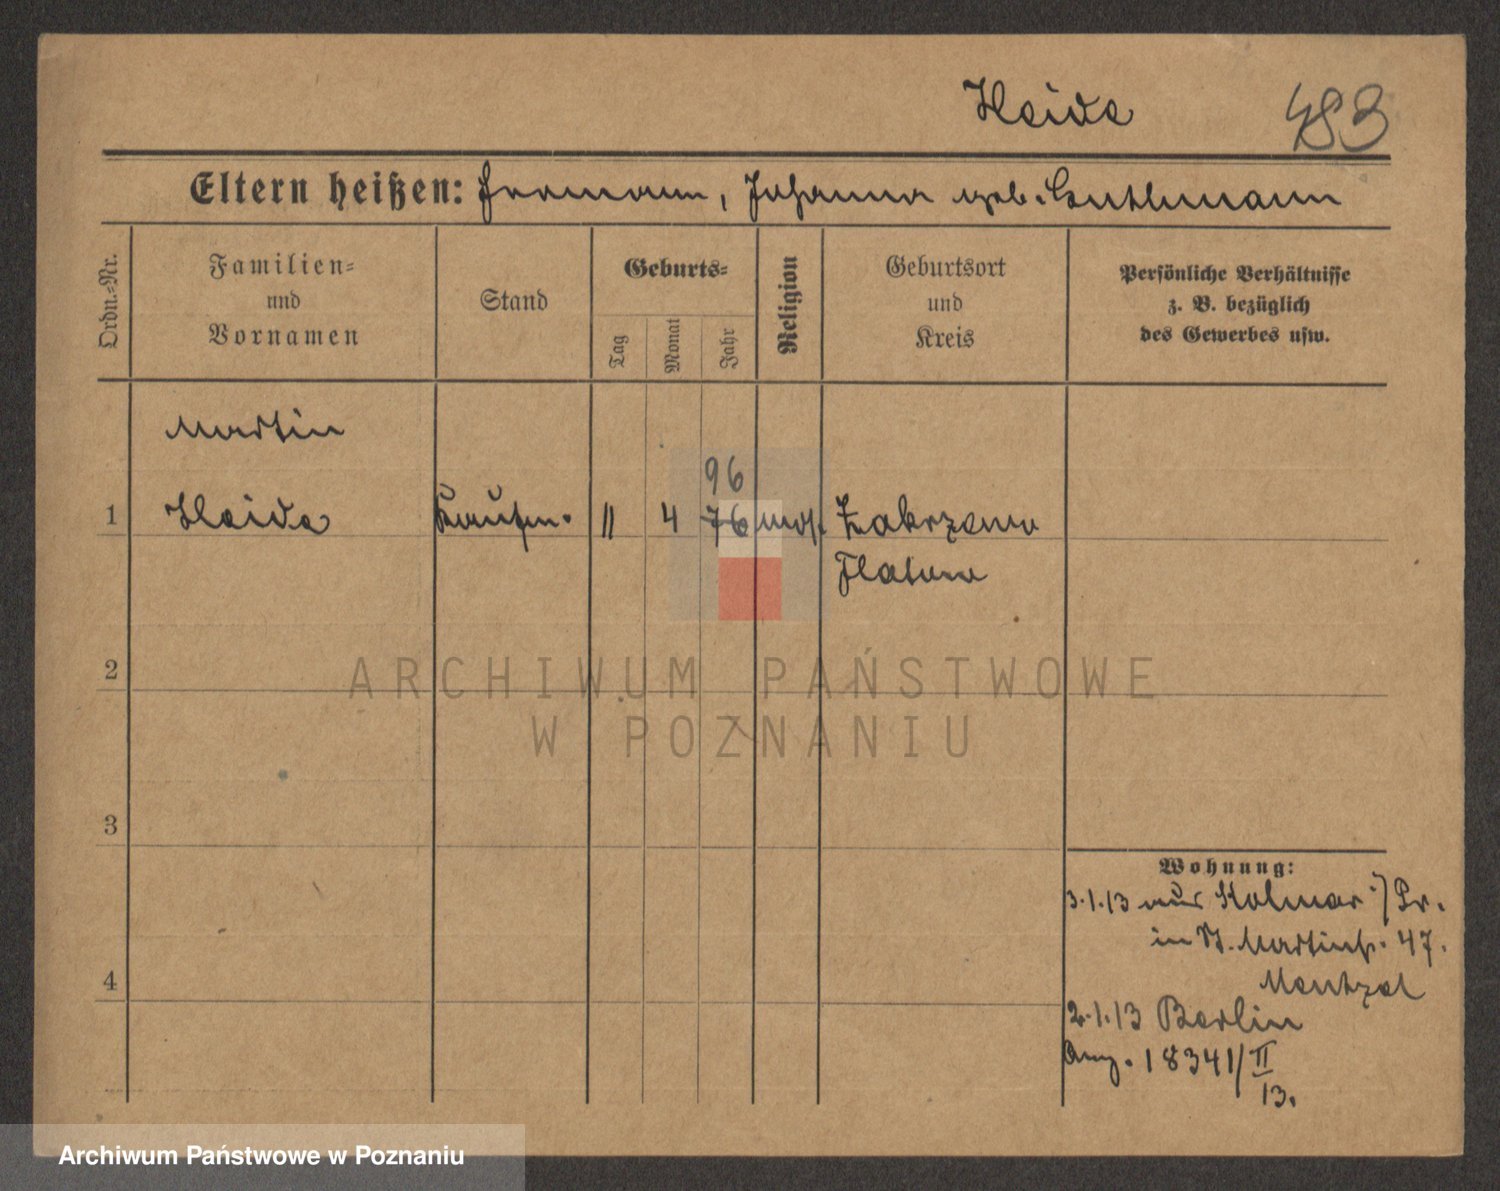 Heida 483
Eltern heißen: Hermann, Johanna geb. Guthmann
Ordn.-Nr.
Familien-
und
Vornamen
Stand
Geburts-
Tag
Monat
Jahr
Religion
Geburtsort
und
Kreis
Persönliche Verhältnisse
z. B. bezüglich
des Gewerbes usw.
Martin
96
1 Heida Kaufm. 11 4 76 mos. Zakrzewo
Flatow
2
3
4
Wohnung:
3.1.13 aus Kolmar i/Pr.
in St. Martinstr. 47.
Mentzel
2.1.13 Berlin
Anz. 18341/II
13.
ARCHIWUM PAŃSTWOWE
W POZNANIU
Archiwum Państwowe w Poznaniu